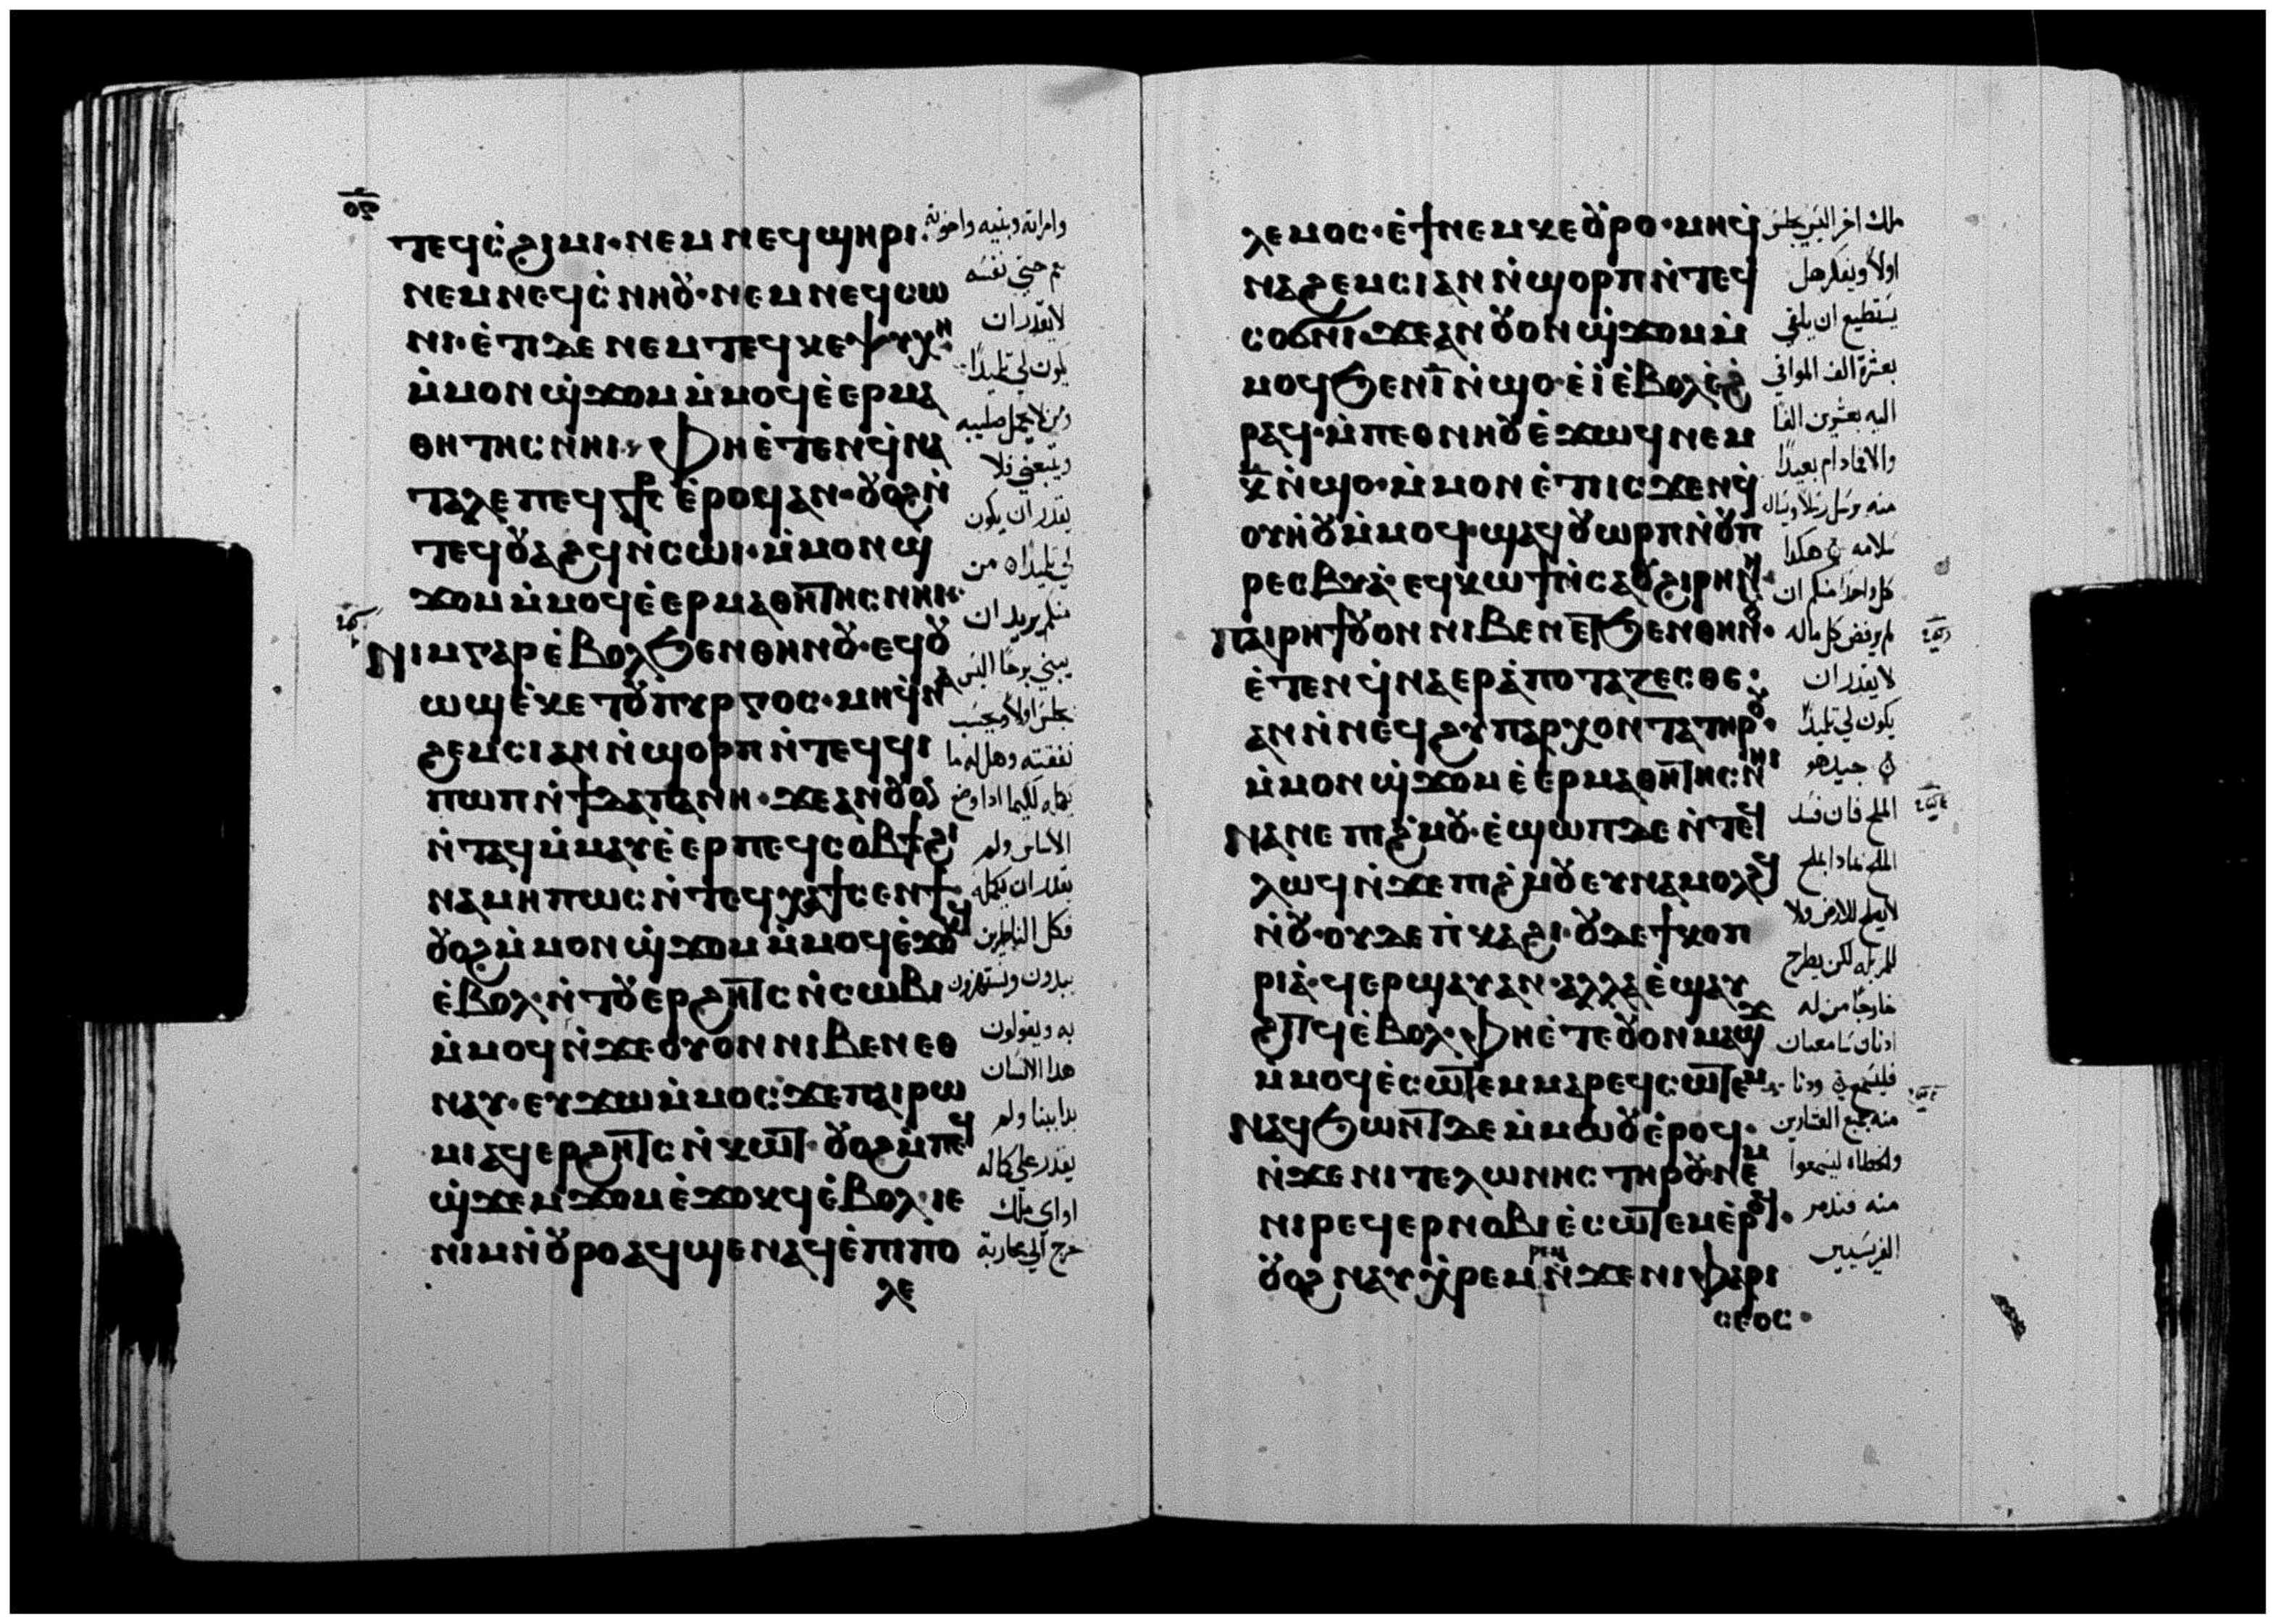 ⲧⲉϥⲥ̀ϩⲓⲙⲓ· ⲛⲉⲙ ⲛⲉϥϣⲏⲣⲓ·
ⲛⲉⲙ ⲛⲉϥⲥ̀ⲛⲏⲟⲩ· ⲛⲉⲙ ⲛⲉϥⲥⲱ
ⲛⲓ· ⲉ̀ⲧⲓ ⲇⲉ ⲛⲉⲙ ⲧⲉϥⲕⲉⲯⲩⲭⲏ
ⲙ̀ⲙⲟⲛ ϣ̀ϫⲟⲙ ⲙ̀ⲙⲟϥ ⲉ̀ⲉⲣⲙⲁ
ⲑⲏⲧⲏⲥ ⲛⲏⲓ· ⲫⲏ ⲉ̀ⲧⲉⲛϥ̀ⲛⲁ
ⲧⲁⲗⲉ ⲡⲉϥⳁⲥ ⲉ̀ⲣⲟϥ ⲁⲛ· ⲟⲩⲟϩ ⲛ̀
ⲧⲉϥⲟⲩⲁϩϥ ⲛ̀ⲥⲱⲓ· ⲙ̀ⲙⲟⲛ ϣ
ϫⲟⲙ ⲙ̀ⲙⲟϥ ⲉ̀ⲉⲣⲙⲁⲑⲏⲧⲏⲥ ⲛⲏⲓ·
ⲛⲓⲙ ⲅⲁⲣ ⲉ̀ⲃⲟⲗ ϧⲉⲛ ⲑⲏⲛⲟⲩ· ⲉϥⲟⲩ
ⲱϣ ⲉ̀ⲕⲉⲧ ⲟⲩⲡⲩⲣⲅⲟⲥ· ⲙⲏ ϥ̀ⲛⲁ
ϩⲉⲙⲥⲓ ⲁⲛ ⲛ̀ϣⲟⲣⲡ ⲛ̀ⲧⲉϥϥⲓ
ⲡⲱⲡ ⲛ̀ϯⲇⲁⲡⲁⲛⲏ· ϫⲉ ⲁⲛ ⲟⲩⲟⲛ
ⲛ̀ⲧⲁϥ ⲙ̀ⲙⲁⲩ ⲉ̀ⲉⲣ ⲡⲉϥⲥⲟⲃϯ ϩⲓ
ⲛⲁ ⲙⲏⲡⲱⲥ ⲛ̀ⲧⲉϥⲭⲁ ϯⲥⲉⲛϯ·
ⲟⲩⲟϩ ⲙ̀ⲙⲟⲛ ϣ̀ϫⲟⲙ ⲙ̀ⲙⲟϥ ⲉ̀ϫⲟⲕϥ
ⲉ̀ⲃⲟⲗ· ⲛ̀ⲧⲟⲩⲉⲣϩⲏⲧⲥ ⲛ̀ⲥⲱⲃⲓ
ⲙ̀ⲙⲟϥ ⲛ̀ϫⲉ ⲟⲩⲟⲛ ⲛⲓⲃⲉⲛ ⲉⲑ
ⲛⲁⲩ· ⲉⲩϫⲱ ⲙ̀ⲙⲟⲥ· ϫⲉ ⲡⲁⲓⲣⲱ
ⲙⲓ ⲁϥⲉⲣϩⲏⲧⲥ ⲛ̀ⲕⲱⲧ· ⲟⲩⲟϩ ⲙ̀ⲡⲉϥ
ϣ̀ϫⲉⲙϫⲟⲙ ⲉ̀ϫⲟⲕϥ ⲉ̀ⲃⲟⲗ· ⲓⲉ
ⲛⲓⲙ ⲛ̀ⲟⲩⲣⲟ ⲁϥϣⲉⲛⲁϥ ⲉ̀ⲡⲓⲡⲟ
ⲗⲉ
وامراته وبنيه واخوته
نعم حتى نفسه
لا يقدر ان
يكون لي تلميذا
ومن لا يحمل صليبه
ويتبعني فلا
يقدر ان يكون
لي تلميذا من
منكم يريد ان
يبني برجا اليس
يجلس اولا ويحسب
نفقته وهل له ما
يكمله لكيما اذا وضع
الاساس ولم
يقدر ان يكمله
فكل الناظرين
يبدون ويستهزون
به ويقولون
هذا الانسان
بدا يبنا ولم
يقدر على كماله
او اي ملك
خرج الى محاربة
ⲗⲉⲙⲟⲥ· ⲉ̀ϯ ⲛⲉⲙ ⲕⲉⲟⲩⲣⲟ· ⲙⲏ ϥ̀
ⲛⲁϩⲉⲙⲥⲓ ⲁⲛ ⲛ̀ϣⲟⲣⲡ ⲛ̀ⲧⲉϥ
ⲥⲟϭⲛⲓ· ϫⲉ ⲁⲛ ⲟⲩⲟⲛ ϣ̀ϫⲟⲙ ⲙ̀
ⲙⲟϥ ϧⲉⲛ ⲓ̅ ⲛ̀ϣⲟ· ⲉ̀ⲓ̀ ⲉ̀ⲃⲟⲗ ⲉ̀ϩ
ⲣⲁϥ· ⲙ̀ⲡⲉⲑⲛⲏⲟⲩ ⲉ̀ϫⲱϥ ⲛⲉⲙ
ⲕ̅ ⲛ̀ϣⲟ· ⲙ̀ⲙⲟⲛ ⲉ̀ⲧⲓ ⲓⲥϫⲉⲛ ϥ̀
ⲟⲩⲏⲟⲩ ⲙ̀ⲙⲟϥ· ϣⲁϥⲟⲩⲱⲣⲡ ⲛ̀ⲟⲩⲡ
ⲣⲉⲥⲃⲩⲁ· ⲉϥⲕⲱϯ ⲛ̀ⲥⲁ ⲟⲩϩⲓⲣⲏⲛⲏ·
ⲡⲁⲓⲣⲏϯ ⲟⲩⲟⲛ ⲛⲓⲃⲉⲛ ⲉⲧϧⲉⲛ ⲑⲏⲛⲟⲩ·
ⲉ̀ⲧⲉⲛϥ̀ⲛⲁⲉⲣⲁ̀ⲡⲟⲧⲁⲍⲉⲥⲑⲉ·
ⲁⲛ ⲛ̀ⲛⲉϥϩⲩⲡⲁⲣⲭⲟⲛⲧⲁ ⲧⲏⲣⲟⲩ·
ⲙ̀ⲙⲟⲛ ϣ̀ϫⲟⲙ ⲉ̀ⲉⲣⲙⲁⲑⲏⲧⲏⲥ ⲛⲏⲓ
ⲛⲁⲛⲉ ⲡⲓϩ̀ⲙⲟⲩ· ⲉ̀ϣⲱⲡ ⲇⲉ ⲛ̀ⲧⲉϥ
ⲗⲱϥ ⲛ̀ϫⲉ ⲡⲓϩ̀ⲙⲟⲩ ⲉⲩⲛⲁⲙⲟⲗϩϥ
ⲛ̀ⲟⲩ· ⲟⲩⲇⲉ ⲡ̀ⲕⲁϩⲓ· ⲟⲩⲇⲉ ϯⲕⲟⲡ
ⲣⲓⲁ· ϥⲉⲣϣⲁⲩ ⲁⲛ· ⲁⲗⲗⲁ ⲉ̀ϣⲁⲩ
ϩⲓⲧϥ ⲉ̀ⲃⲟⲗ· ⲫⲏ ⲉ̀ⲧⲉ ⲟⲩⲟⲛ ⲙⲁϣϫ
ⲙ̀ⲙⲟϥ ⲉ̀ⲥⲱⲧⲉⲙ ⲙⲁⲣⲉϥⲥⲱⲧⲉⲙ
ⲛⲁϥϧⲱⲛⲧ ⲇⲉ ⲙ̀ⲙⲱⲟⲩ ⲉ̀ⲣⲟϥ·
ⲛ̀ϫⲉ ⲛⲓⲧⲉⲗⲱⲛⲏⲥ ⲧⲏⲣⲟⲩ· ⲛⲉⲙ
ⲛⲓⲣⲉϥⲉⲣⲛⲟⲃⲓ ⲉ̀ⲥⲱⲧⲉⲙ ⲉ̀ⲣⲟϥ·
ⲟⲩⲟϩ ⲛⲁⲩⲭ̀ⲣⲉⲙⲣⲉⲙ ⲛ̀ϫⲉ ⲛⲓⲫⲁⲣⲓ
ⲥⲉⲟⲥ·
ملك اخر اليس يجلس
اولا ويفكر هل
يستطيع ان يلقي
بعشرة الف الموافي
اليه بعشرين الفا
والا فما دام بعيدا
منه يرسل رسلا ويسال
سلامه هكذا
كل واحد منكم ان
لم يرفض كل ماله
لا يقدر ان
يكون لي تلميذا
جيد هو
الملح فان فسد
الملح بماذا يملح
لا يصلح للارض ولا
للمزبله لكن يطرح
خارجا من له
اذنان سامعتان
فليسمع ودنا
منه جميع العشارين
والخطاه ليسمعوا
منه فتذمر
الفريسيين